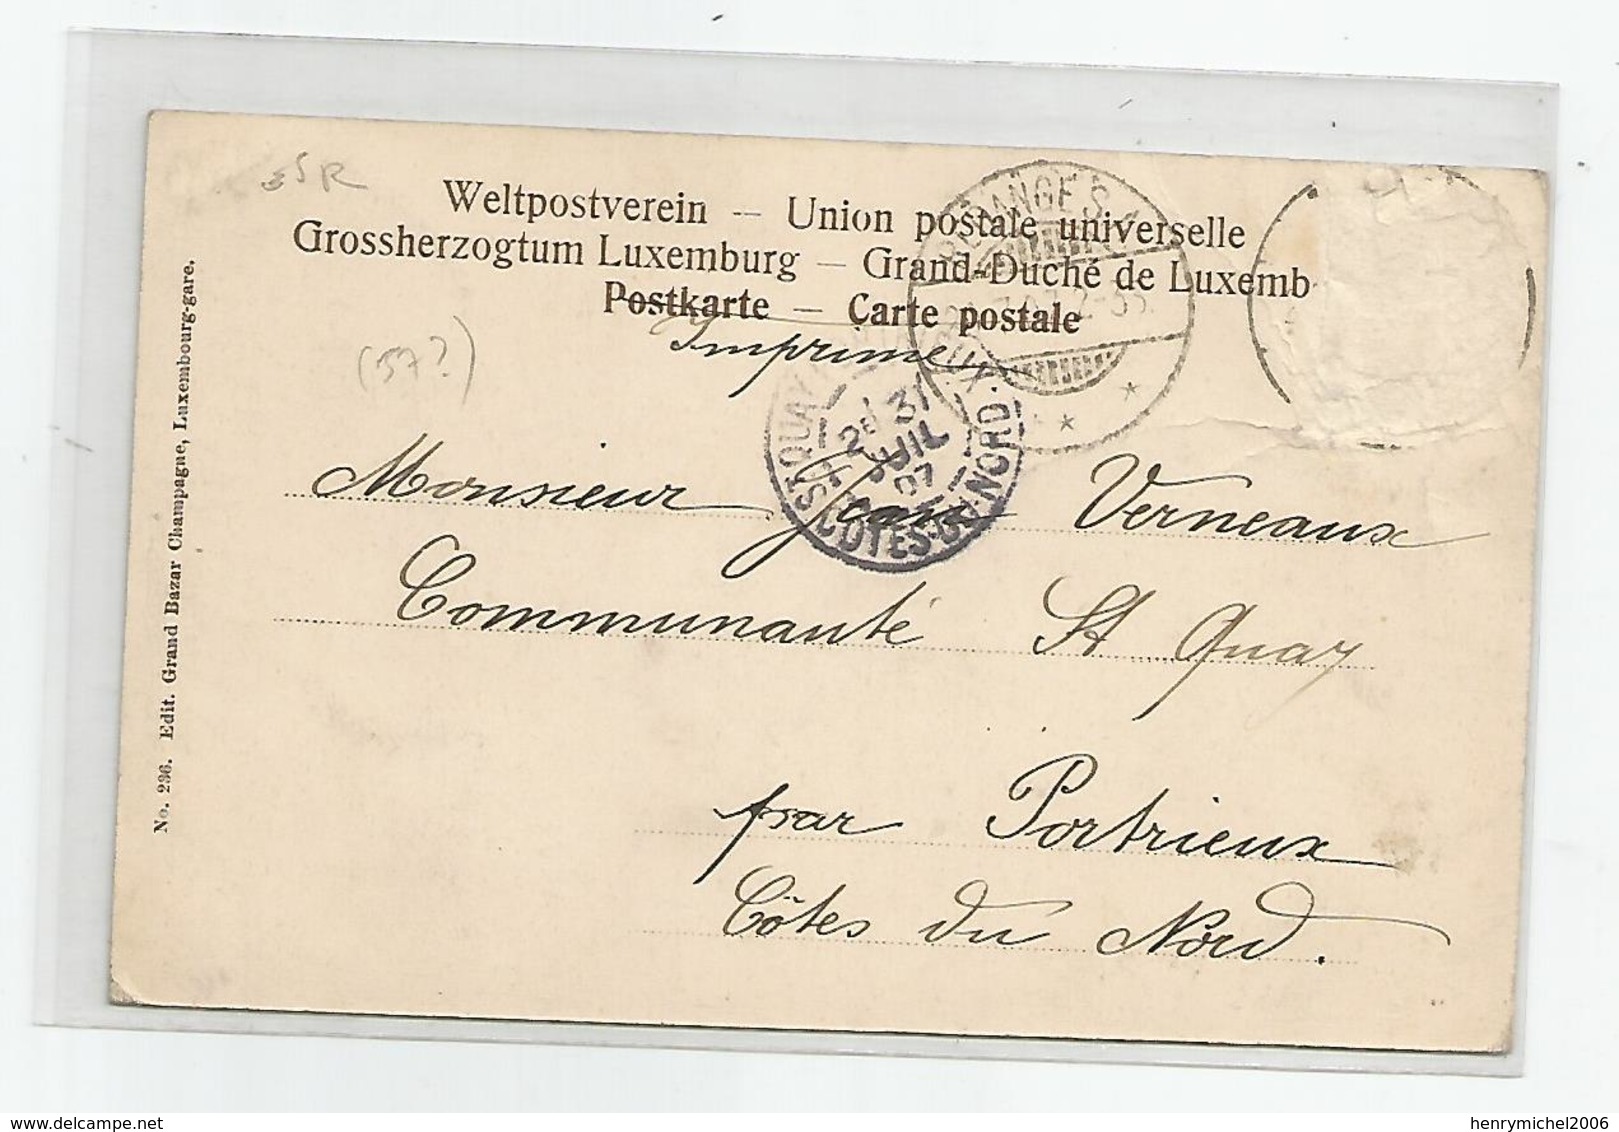 SR
Weltpostverein — Union postale universelle
Grossherzogtum Luxemburg — Grand-Duché de Luxemb
Postkarte — Carte postale
Imprimé
(57?)
31
JUIL
07
CÔTES-DU-NORD
Monsieur Jean Verneaux
Communauté St Quay
par Portrieux
Côtes du Nord.
No. 236. Edit. Grand Bazar Champagne, Luxembourg-gare.
delcampe.net
henrymichel2006